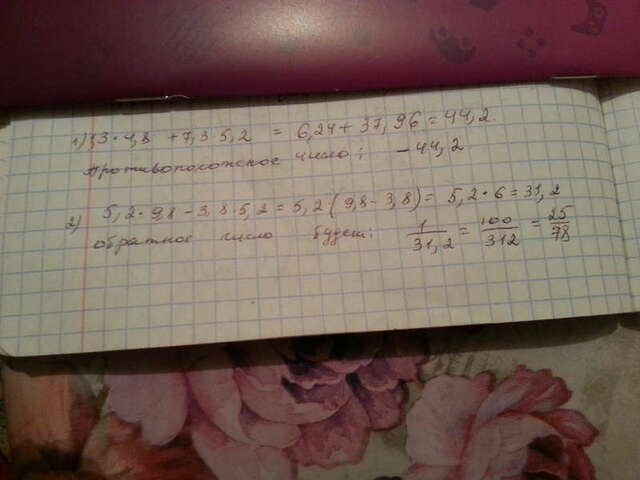 1) 1,3 · 4,8 + 7,3 · 5,2 = 6,24 + 37,96 = 44,2.
противоположное число; - 44,2
2) 5,2 · 9,8 - 3,8 · 5,2 = 5,2 (9,8 - 3,8) = 5,2 · 6 = 31,2
обратное число будет: 1/31,2 = 100/312 = 25/78